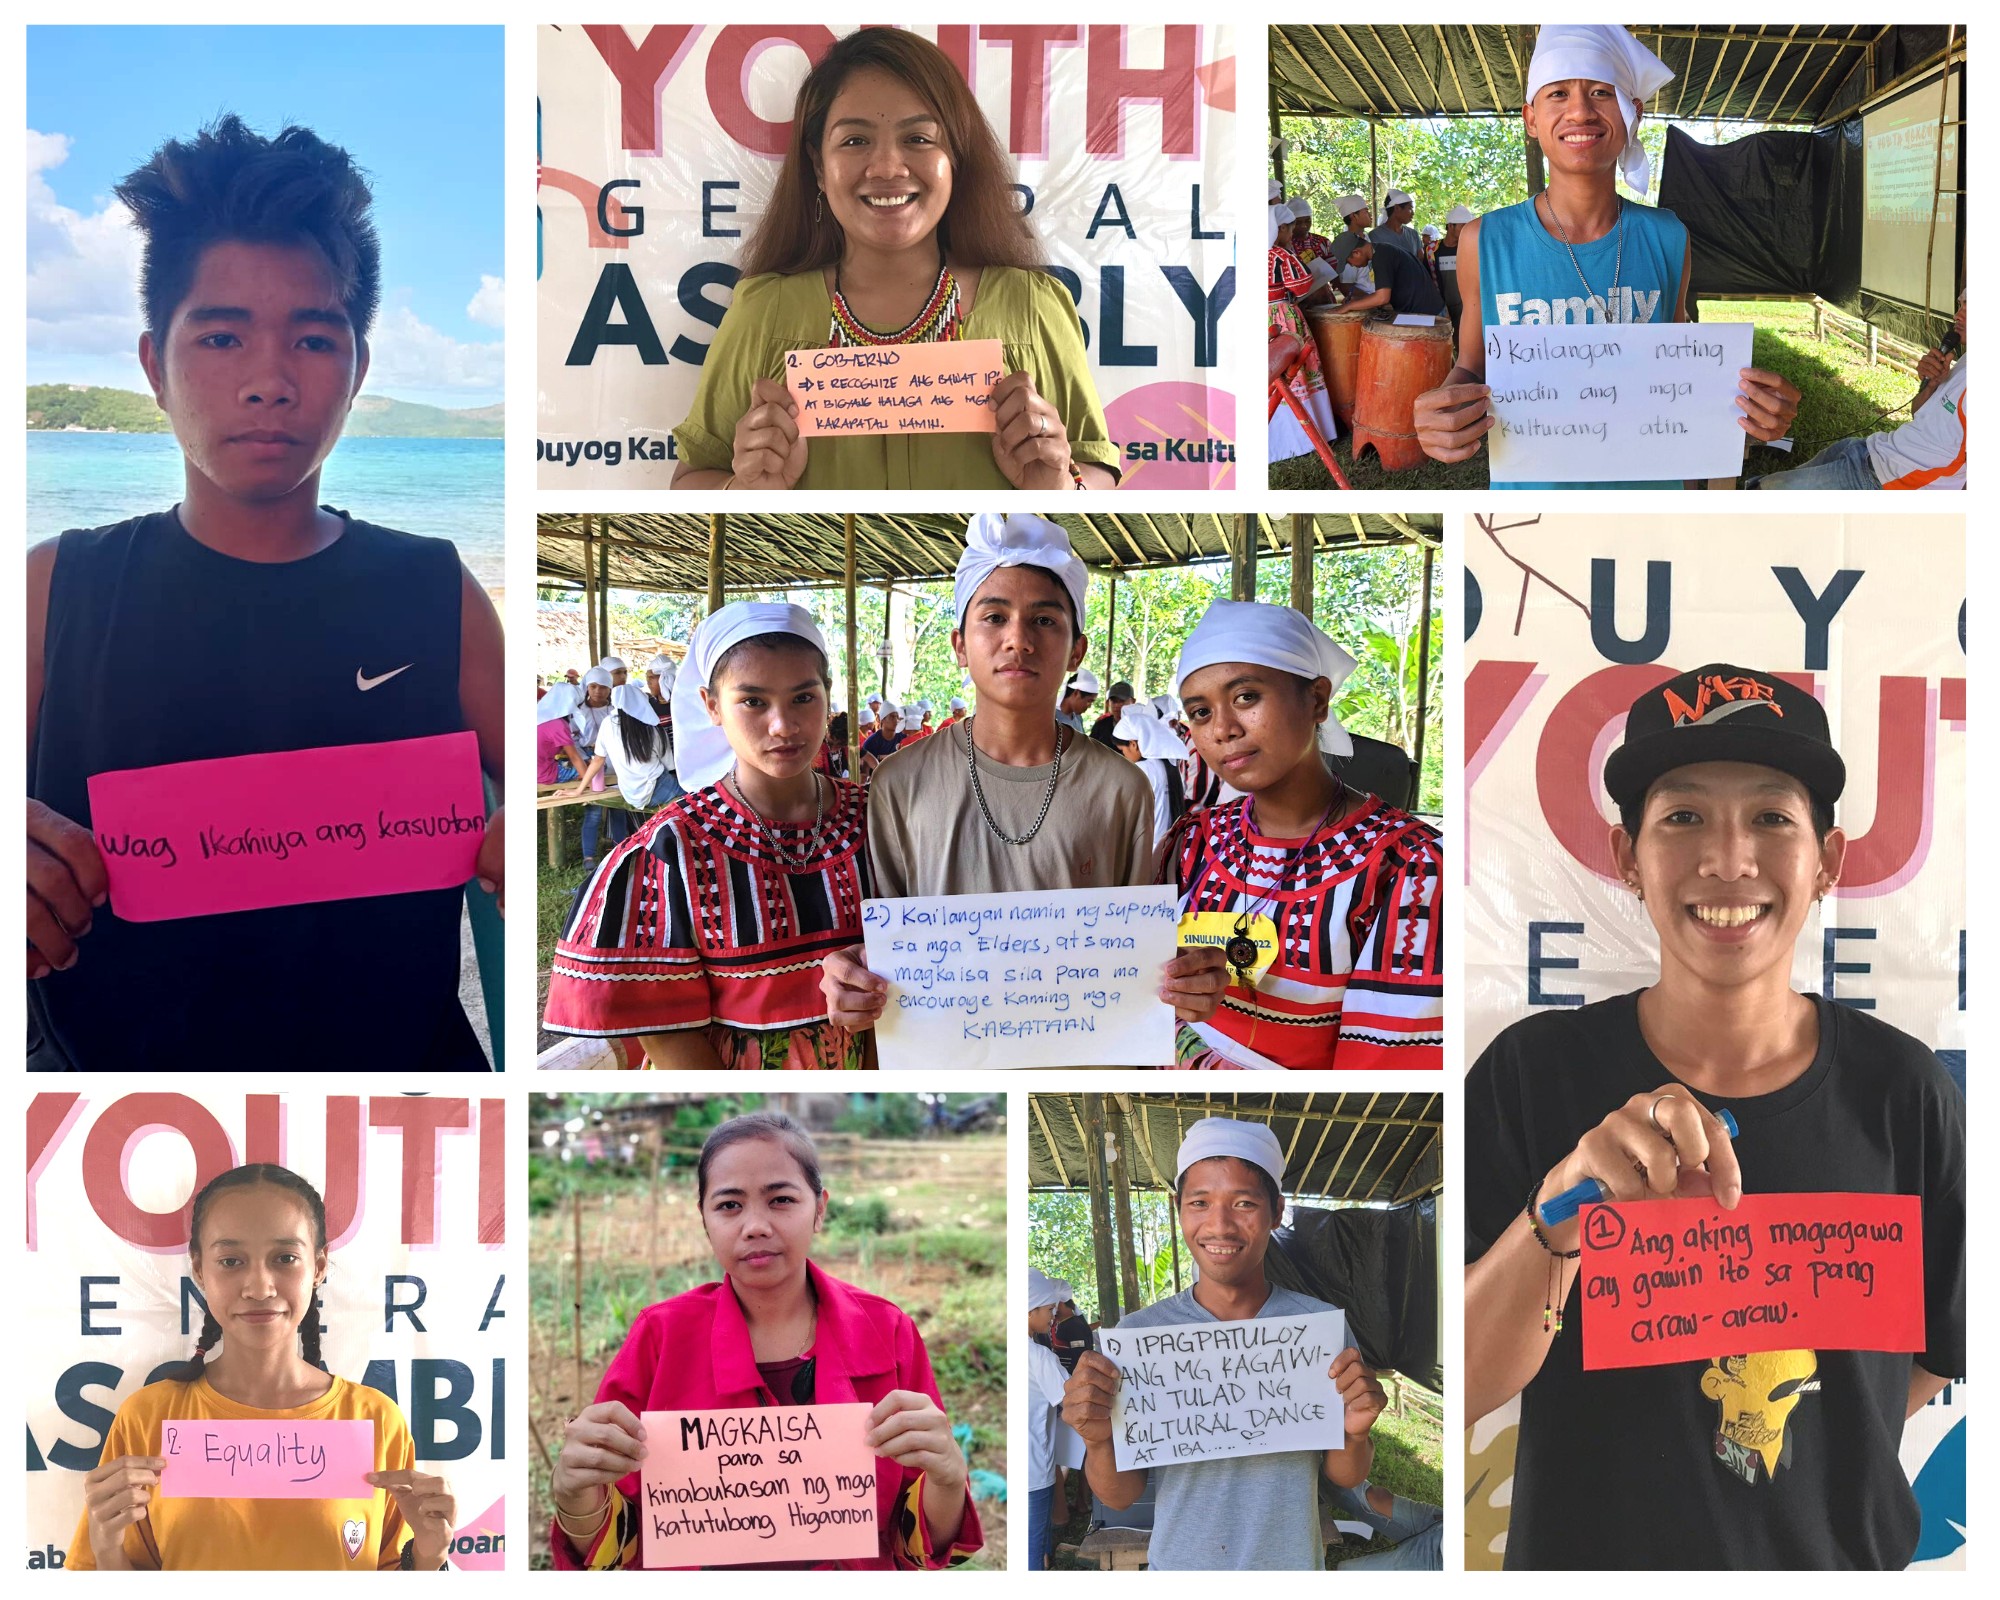 wag Ikahiya ang kasuotan
YOUTH
GE RAL
AS BLY
Duyog Kab
sa Kultu
2. GOBYERNO
⇒ E RECOGNIZE ANG BAWAT IP's
AT BIGYANG HALAGA ANG MGA
KARAPATAN NAMIN.
Family
1.) Kailangan nating
sundin ang mga
kulturang atin.
2.) Kailangan namin ng suporta
sa mga Elders, at sana
magkaisa sila para ma
encourage kaming mga
KABATAAN
SINULUNA 2022
DUYO
YOUT
E E
NIKE
① Ang aking magagawa
ay gawin ito sa pang
araw-araw.
YOUTH
ENERA
ASSEMBL
Kab
2. Equality
GO
AWAY
MAGKAISA
para sa
kinabukasan ng mga
katutubong Higaonon
1) IPAGPATULOY
ANG MG KAGAWI-
AN TULAD NG
KULTURAL DANCE
AT IBA.....